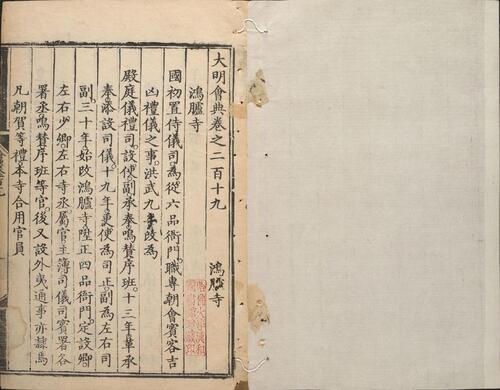 大明會典卷之二百十九
鴻臚寺
鴻臚寺
國初置侍儀司為從六品衙門職專朝會賓客吉
凶禮儀之事洪武九年改為
殿庭儀禮司設使副承奉鳴贊序班十三年革承
奉添設司儀十九年更使為司正副為左右司
副三十年始改鴻臚寺陞正四品衙門定設卿
左右少卿左右寺丞屬官主簿司儀司賓署各
署丞鳴贊序班等官後又設外夷通事亦隸焉
凡朝賀等禮本寺合用官員